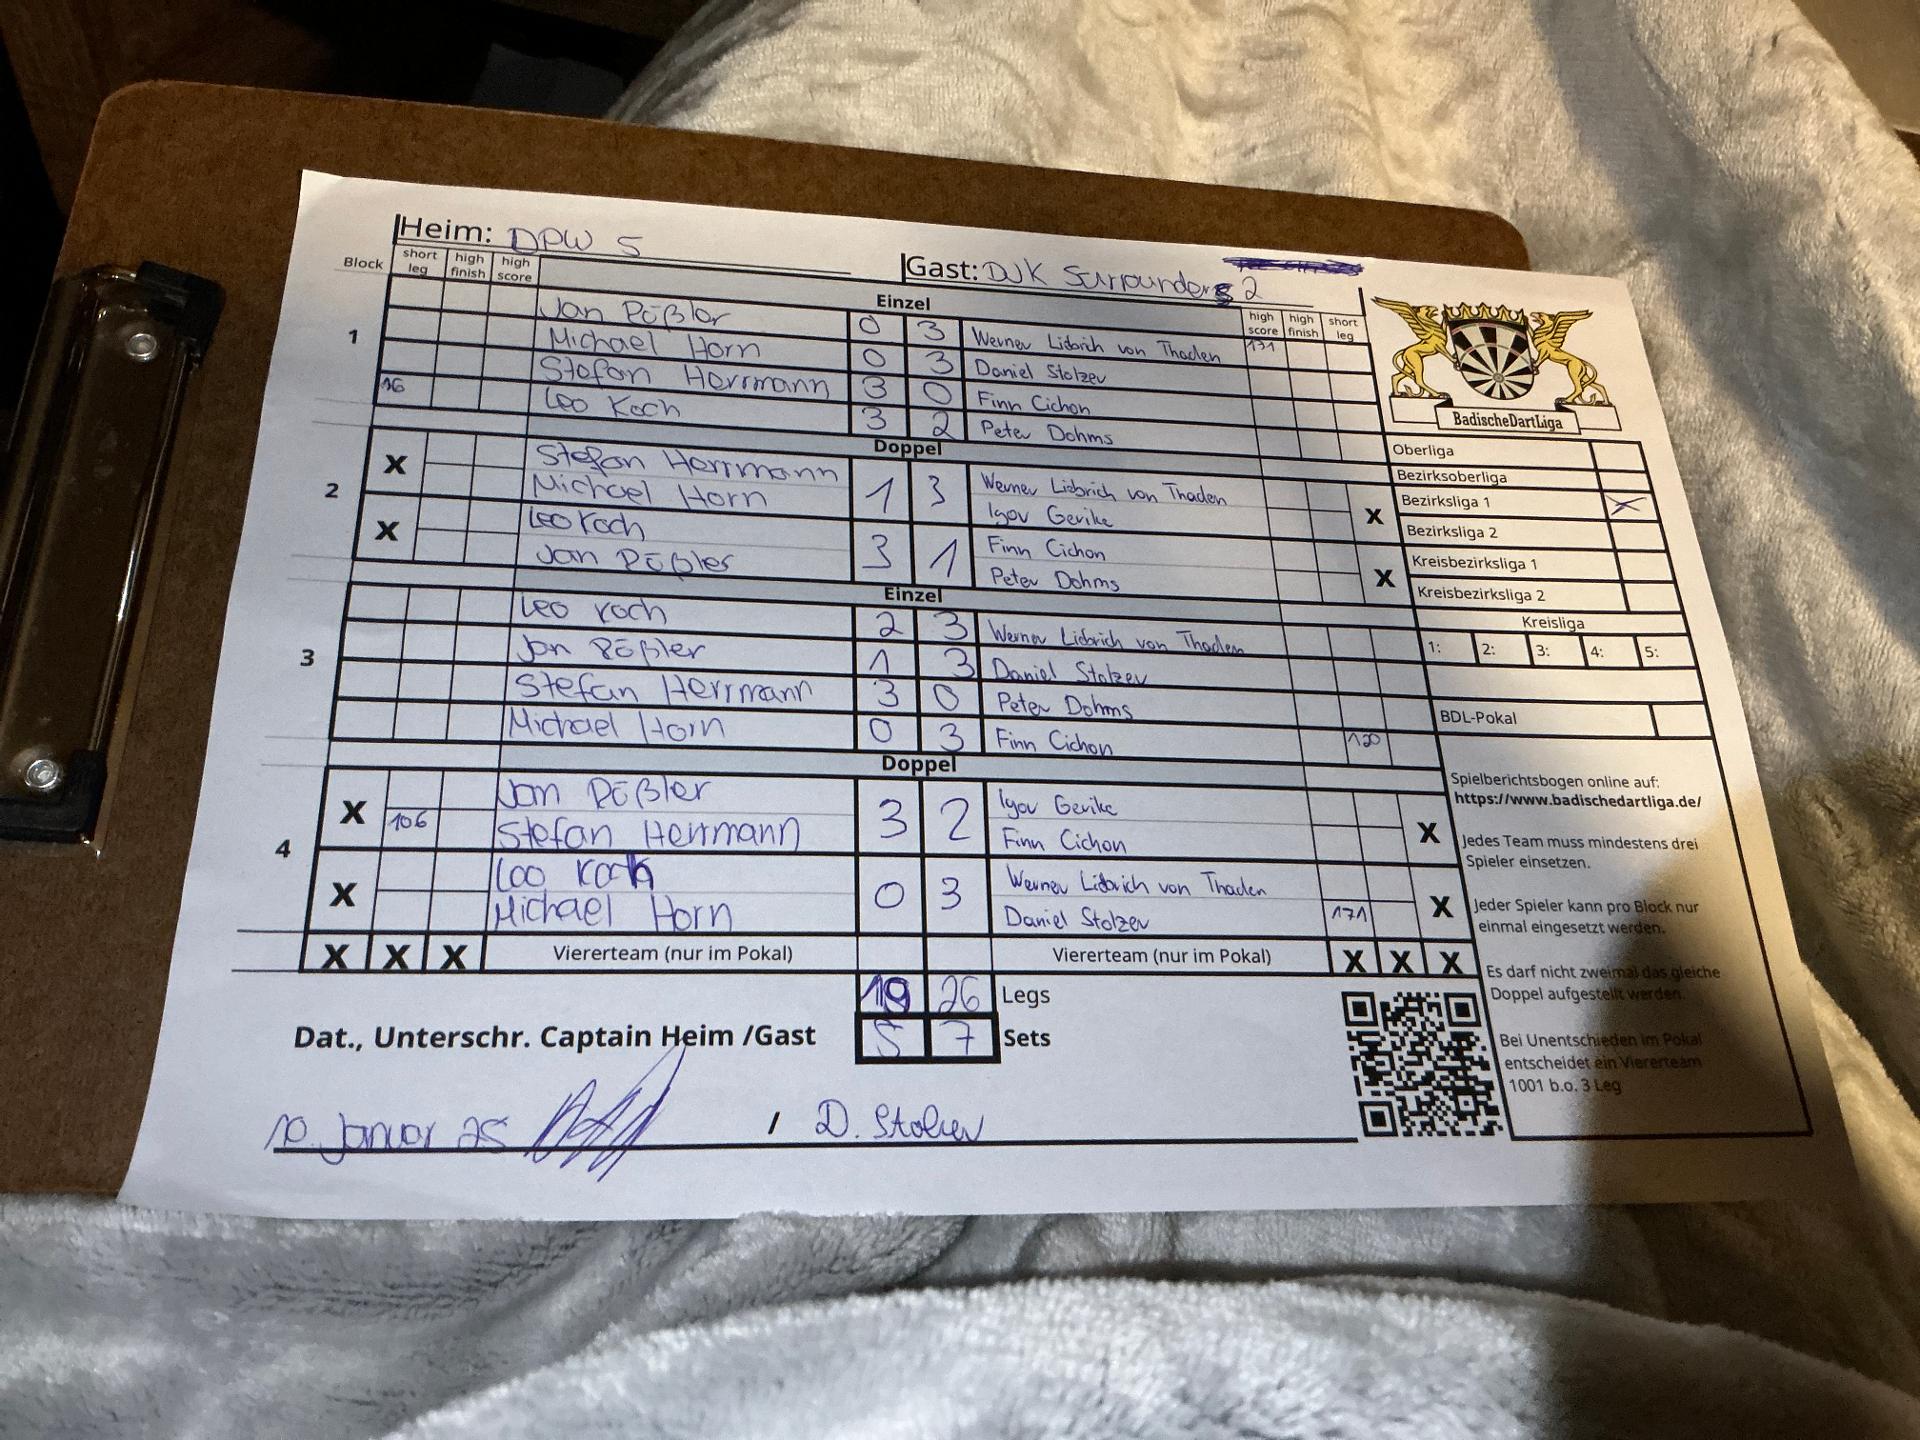 Heim: DPW 5
Gast: DJK Surrounders 2
Block short leg high finish high score Einzel high score high finish short leg
1
Jan Rößler 0 3 Werner Liebrich von Thaden 171
Michael Horn 0 3 Daniel Stolzer
Stefan Herrmann 3 0 Finn Cichon
16 Leo Koch 3 2 Peter Dohms
BadischeDartLiga
Doppel
2
X Stefan Herrmann 1 3 Werner Liebrich von Thaden X
Michael Horn Igor Gerike
X Leo Koch 3 1 Finn Cichon X
Jan Rößler Peter Dohms
Einzel
3
Leo Koch 2 3 Werner Liebrich von Thaden
Jan Rößler 1 3 Daniel Stolzer
Stefan Herrmann 3 0 Peter Dohms
Michael Horn 0 3 Finn Cichon 120
Doppel
4
X Jan Rößler 3 2 Igor Gerike X
106 Stefan Herrmann Finn Cichon
X Leo Koch 0 3 Werner Liebrich von Thaden X
Michael Horn Daniel Stolzer 171
X X X Viererteam (nur im Pokal) Viererteam (nur im Pokal) X X X
19 26 Legs
Dat., Unterschr. Captain Heim /Gast 5 7 Sets
10. Januar 25 / D. Stolzer
Oberliga
Bezirksoberliga
Bezirksliga 1 X
Bezirksliga 2
Kreisbezirksliga 1
Kreisbezirksliga 2
Kreisliga
1: 2: 3: 4: 5:
BDL-Pokal
Spielberichtsbogen online auf:
https://www.badischedartliga.de/
Jedes Team muss mindestens drei
Spieler einsetzen.
Jeder Spieler kann pro Block nur
einmal eingesetzt werden.
Es darf nicht zweimal das gleiche
Doppel aufgestellt werden.
Bei Unentschieden im Pokal
entscheidet ein Viererteam
1001 b.o. 3 Leg